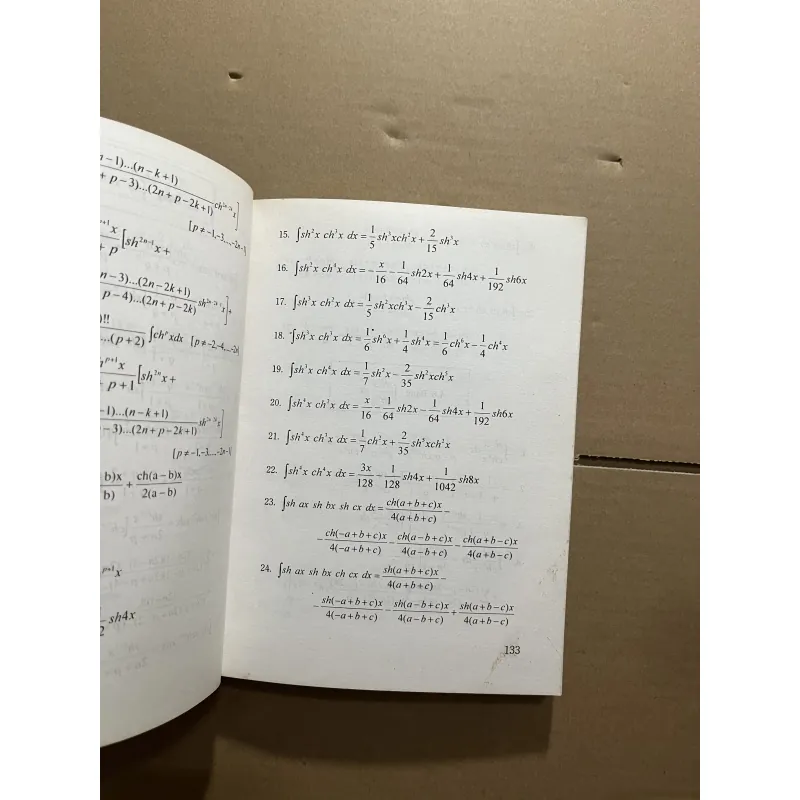 n-1)...(n-k+1)
+p-3)...(2n+p-2k+1) ch²ⁿ⁻²ᵏx]
[p≠-1,-3,...-2n-1]
ᵖ⁺¹x
+p [sh²ⁿ⁻¹x+
n-3)...(2n-2k+1)
p-4)...(2n+p-2k) x]+
)!!
...(p+2) ∫chᵖxdx [p≠-2,-4,...-2n]
ᵖ⁺¹x
+p+1 [sh²ⁿx+
-1)...(n-k+1)
-3)...(2n+p-2k+1) sh²ⁿ⁻²ᵏx]
[p≠-1,-3,...-2n-1]
b)x/b) + ch(a-b)x/2(a-b)
ᵖ⁺¹x
/2 sh4x
15. ∫sh²x ch³x dx = 1/5 sh³xch²x + 2/15 sh³x
16. ∫sh²x ch⁴x dx = -x/16 - 1/64 sh2x + 1/64 sh4x + 1/192 sh6x
17. ∫sh³x ch²x dx = 1/5 sh²xch³x - 2/15 ch³x
18. ∫sh³x ch³x dx = 1/6 sh⁶x + 1/4 sh⁴x = 1/6 ch⁶x - 1/4 ch⁴x
19. ∫sh³x ch⁴x dx = 1/7 sh²x - 2/35 sh²xch⁵x
20. ∫sh⁴x ch²x dx = x/16 - 1/64 sh2x - 1/64 sh4x + 1/192 sh6x
21. ∫sh⁴x ch³x dx = 1/7 ch²x + 2/35 sh⁵xch²x
22. ∫sh⁴x ch⁴x dx = 3x/128 - 1/128 sh4x + 1/1042 sh8x
23. ∫sh ax sh bx sh cx dx = ch(a+b+c)x/4(a+b+c) -
- ch(-a+b+c)x/4(-a+b+c) - ch(a-b+c)x/4(a-b+c) - ch(a+b-c)x/4(a+b-c)
24. ∫sh ax sh bx ch cx dx = sh(a+b+c)x/4(a+b+c) -
- sh(-a+b+c)x/4(-a+b+c) - sh(a-b+c)x/4(a-b+c) + sh(a+b-c)x/4(a+b-c)
133